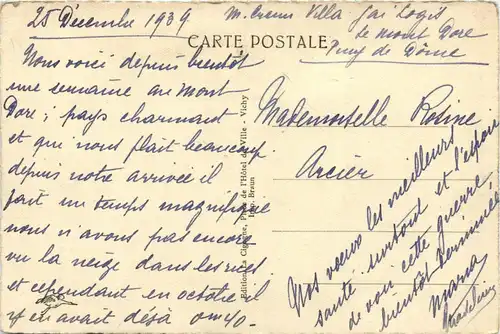 25 Décembre 1939
M. Villa Gai Logis
Le Mont Dore
Puy de Dôme
CARTE POSTALE
Nous voici depuis bientôt
une semaine au Mont
Dore ; pays charmant
et qui nous plait beaucoup
depuis notre arrivée il
fait un temps magnifique
nous n'avons pas encore
vu la neige dans les rues
et cependant en octobre il
y en avait déjà 0m40.
Editions La Cigogne, Place de l'Hôtel de Ville - Vichy
Braun
Mademoiselle Rosine
Arcier
Nos voeux les meilleurs
santé surtout et l'espoir
de voir cette guerre
bientôt terminée
Maria
Madeleine